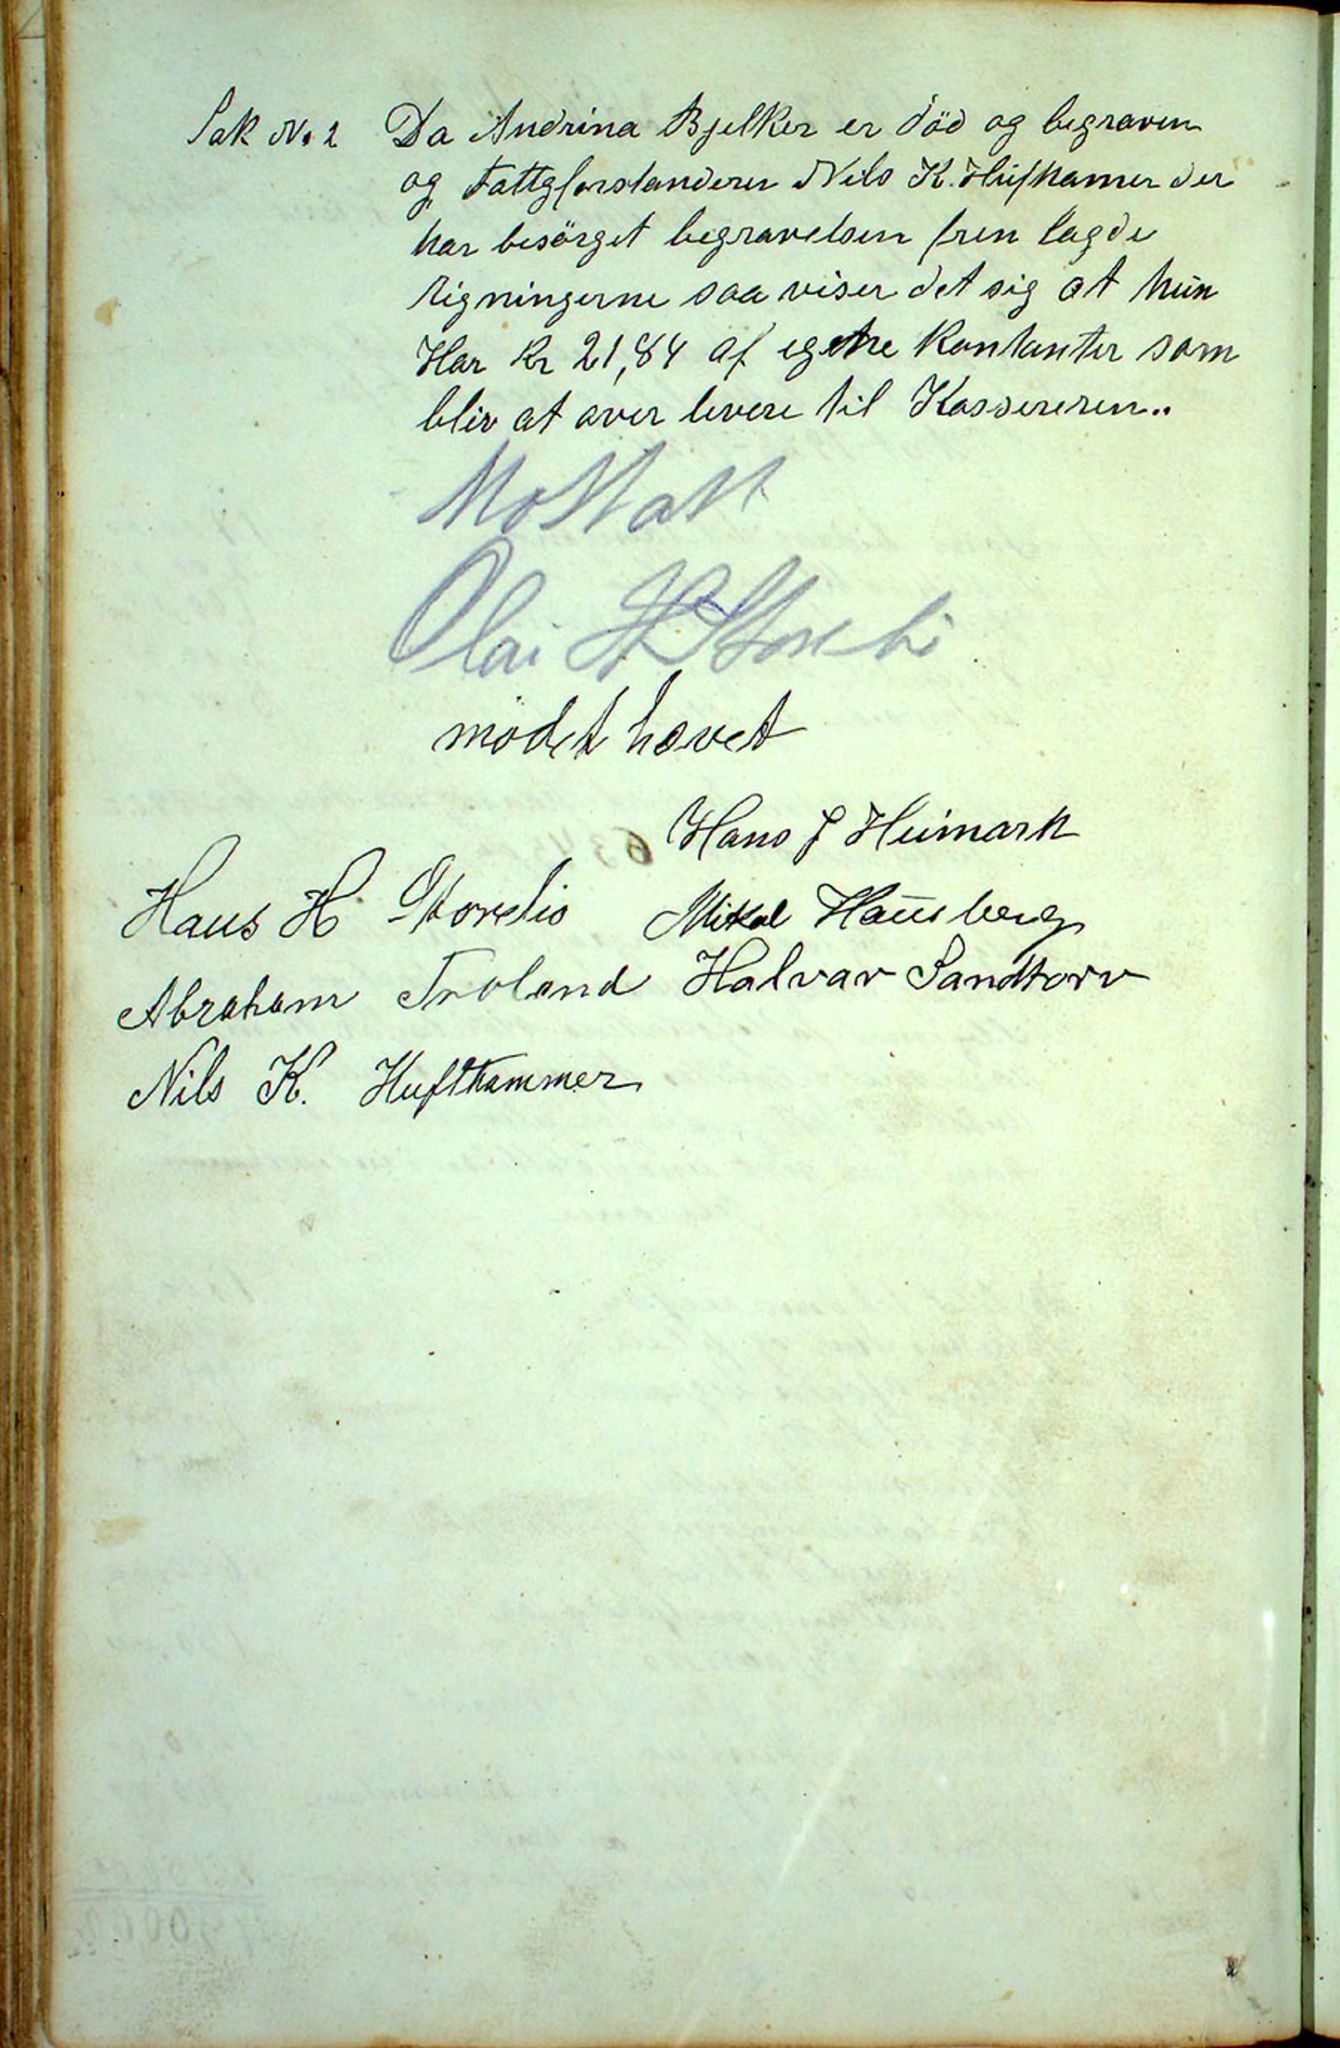 Sak No 2 Da Andrina Bjelker er död og begraven
og Fattgforstanderen Nils K. Hufhamer der
har besörget begravelsen frem lagde
rigningerne saa viser det sig at hun
Har Kr 21,84 af egene Kontanter som
bliv at over levere til Kassereren..
Mottatt
Olai H Storebö
mödet hævet
Hans J Heimark
Hans H Storebö Mikal Hausberg
Abraham Troland Halvar Sandtorv
Nils K. Hufthammer